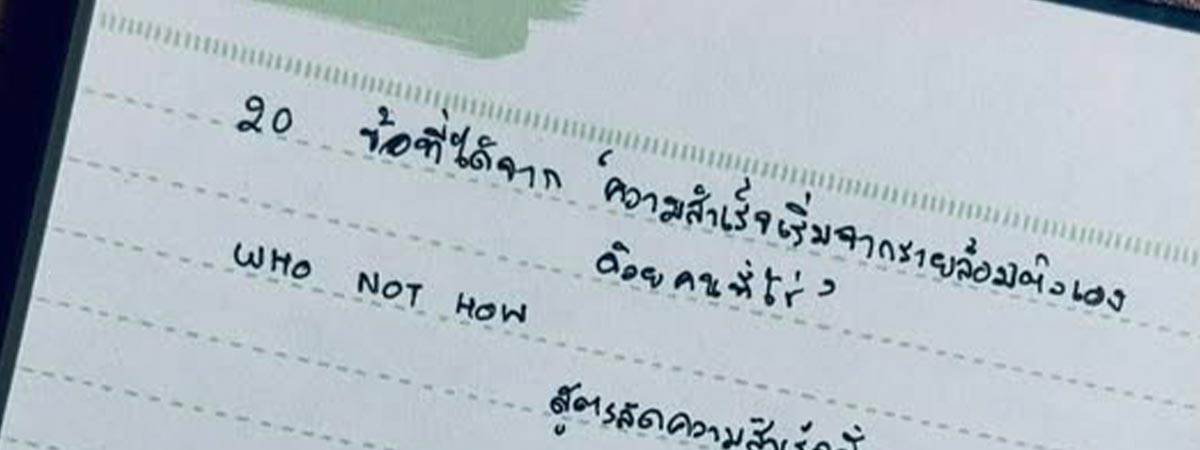 20 ข้อที่ได้จาก 'ความสำเร็จเริ่มจากรายล้อมตัวเอง
ด้วยคนที่ใช่'
WHO NOT HOW
สูตรลัดความสำเร็จ